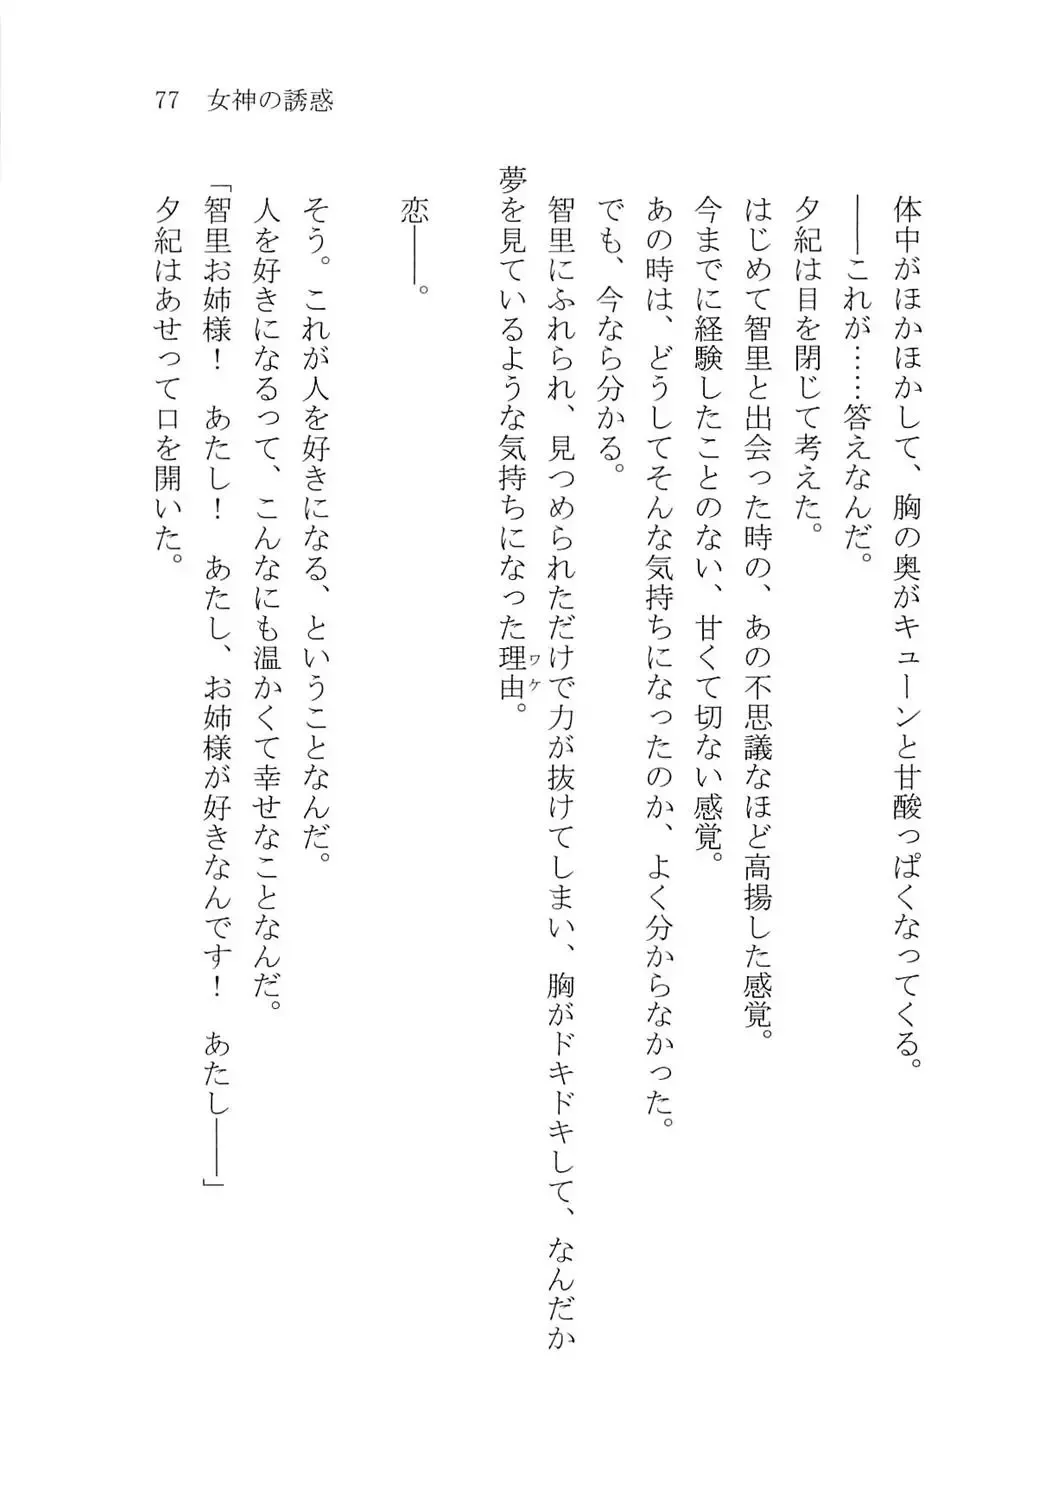 77　女神の誘惑
体中がほかほかして、胸の奥がキューンと甘酸っぱくなってくる。
――これが……答えなんだ。
夕紀は目を閉じて考えた。
はじめて智里と出会った時の、あの不思議なほど高揚した感覚。
今までに経験したことのない、甘くて切ない感覚。
あの時は、どうしてそんな気持ちになったのか、よく分からなかった。
でも、今なら分かる。
智里にふれられ、見つめられただけで力が抜けてしまい、胸がドキドキして、なんだか
夢を見ているような気持ちになった理由ワケ。
恋――。
そう。これが人を好きになる、ということなんだ。
人を好きになるって、こんなにも温かくて幸せなことなんだ。
「智里お姉様！　あたし！　あたし、お姉様が好きなんです！　あたし――」
夕紀はあせって口を開いた。